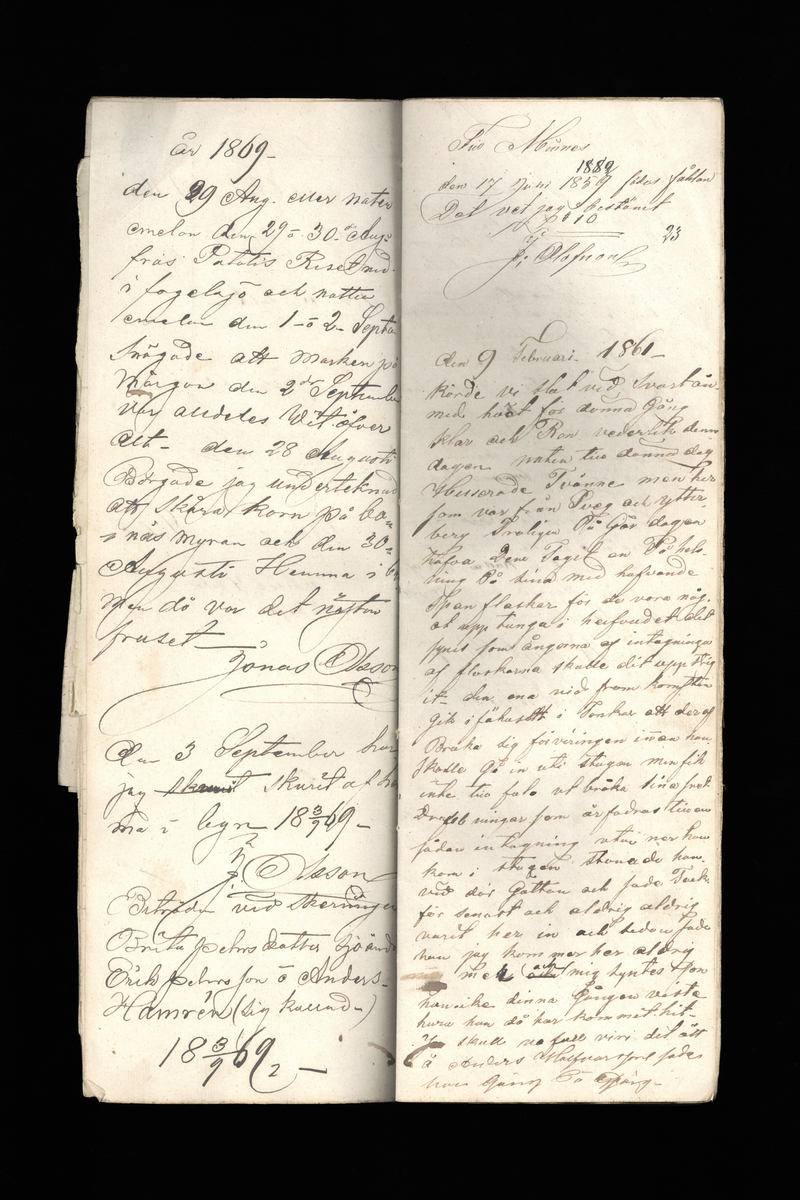 år 1869-
den 29 Aug. eller natten
emelan den 29 å 30 Aug.
frås Potatis Riset
i fogelsjö och natten
emelan den 1 å 2 Septe
Snögade att Marken på
Morgon den 2 September
var aldeles Vit öfver
alt- den 28 Augusti
Börgade jag underteknad
att Skära korn på
näs myran och den 30
Augusti Hemma i
men då var det nästan
fruset
Jonas Olsson
den 3 September har
jag skurit af
ma i byn 18 3/9 69-
J. Olsson
Biträden vid skerningen
Brita pehrs dotter
Erik pehrsson å Anders
Hamrén (sig kallad)
18 3/9 69
Till Minnes
1889
den 17 Juni 1859 födes fåhlan
Det vet jag bestämt
J. Olofsson
23
den 9 Februari. 1861-
körde vi vid Svartån
med för denna Gång
klar och Ren denn
dagen natten till denna dag
Husserade Tvänne men her
som var från Sveg och Ytter-
berg Troligen På Går dagen
hafva Dem Tagit en På hels-
ning På sina med hafvande
Span flaskor för de vora nög
ot upp tunga i hufvudet det
synts som ångorna af intagninga
af flaskorna skulle dit upp stig
it- den ena vid fram komsten
Gik i fähuset i Tankar att deraf
Bruka sig förvirringen innan han
skulle Gå in uti stugan men fik
inte bruka sina
ningar som ärfodras
sådan intagning utan ner han
kom i stugan stanade han
vid dör Gåttan och sade Tack
för senast och aldrig aldrig
varit her in och sedan sade
han jag kommer her aldrig
mer mig syntes
han denna Gången viste
huru han då har kommet hit-
å Anders Halfvarsson sades
han Gång På Gång-